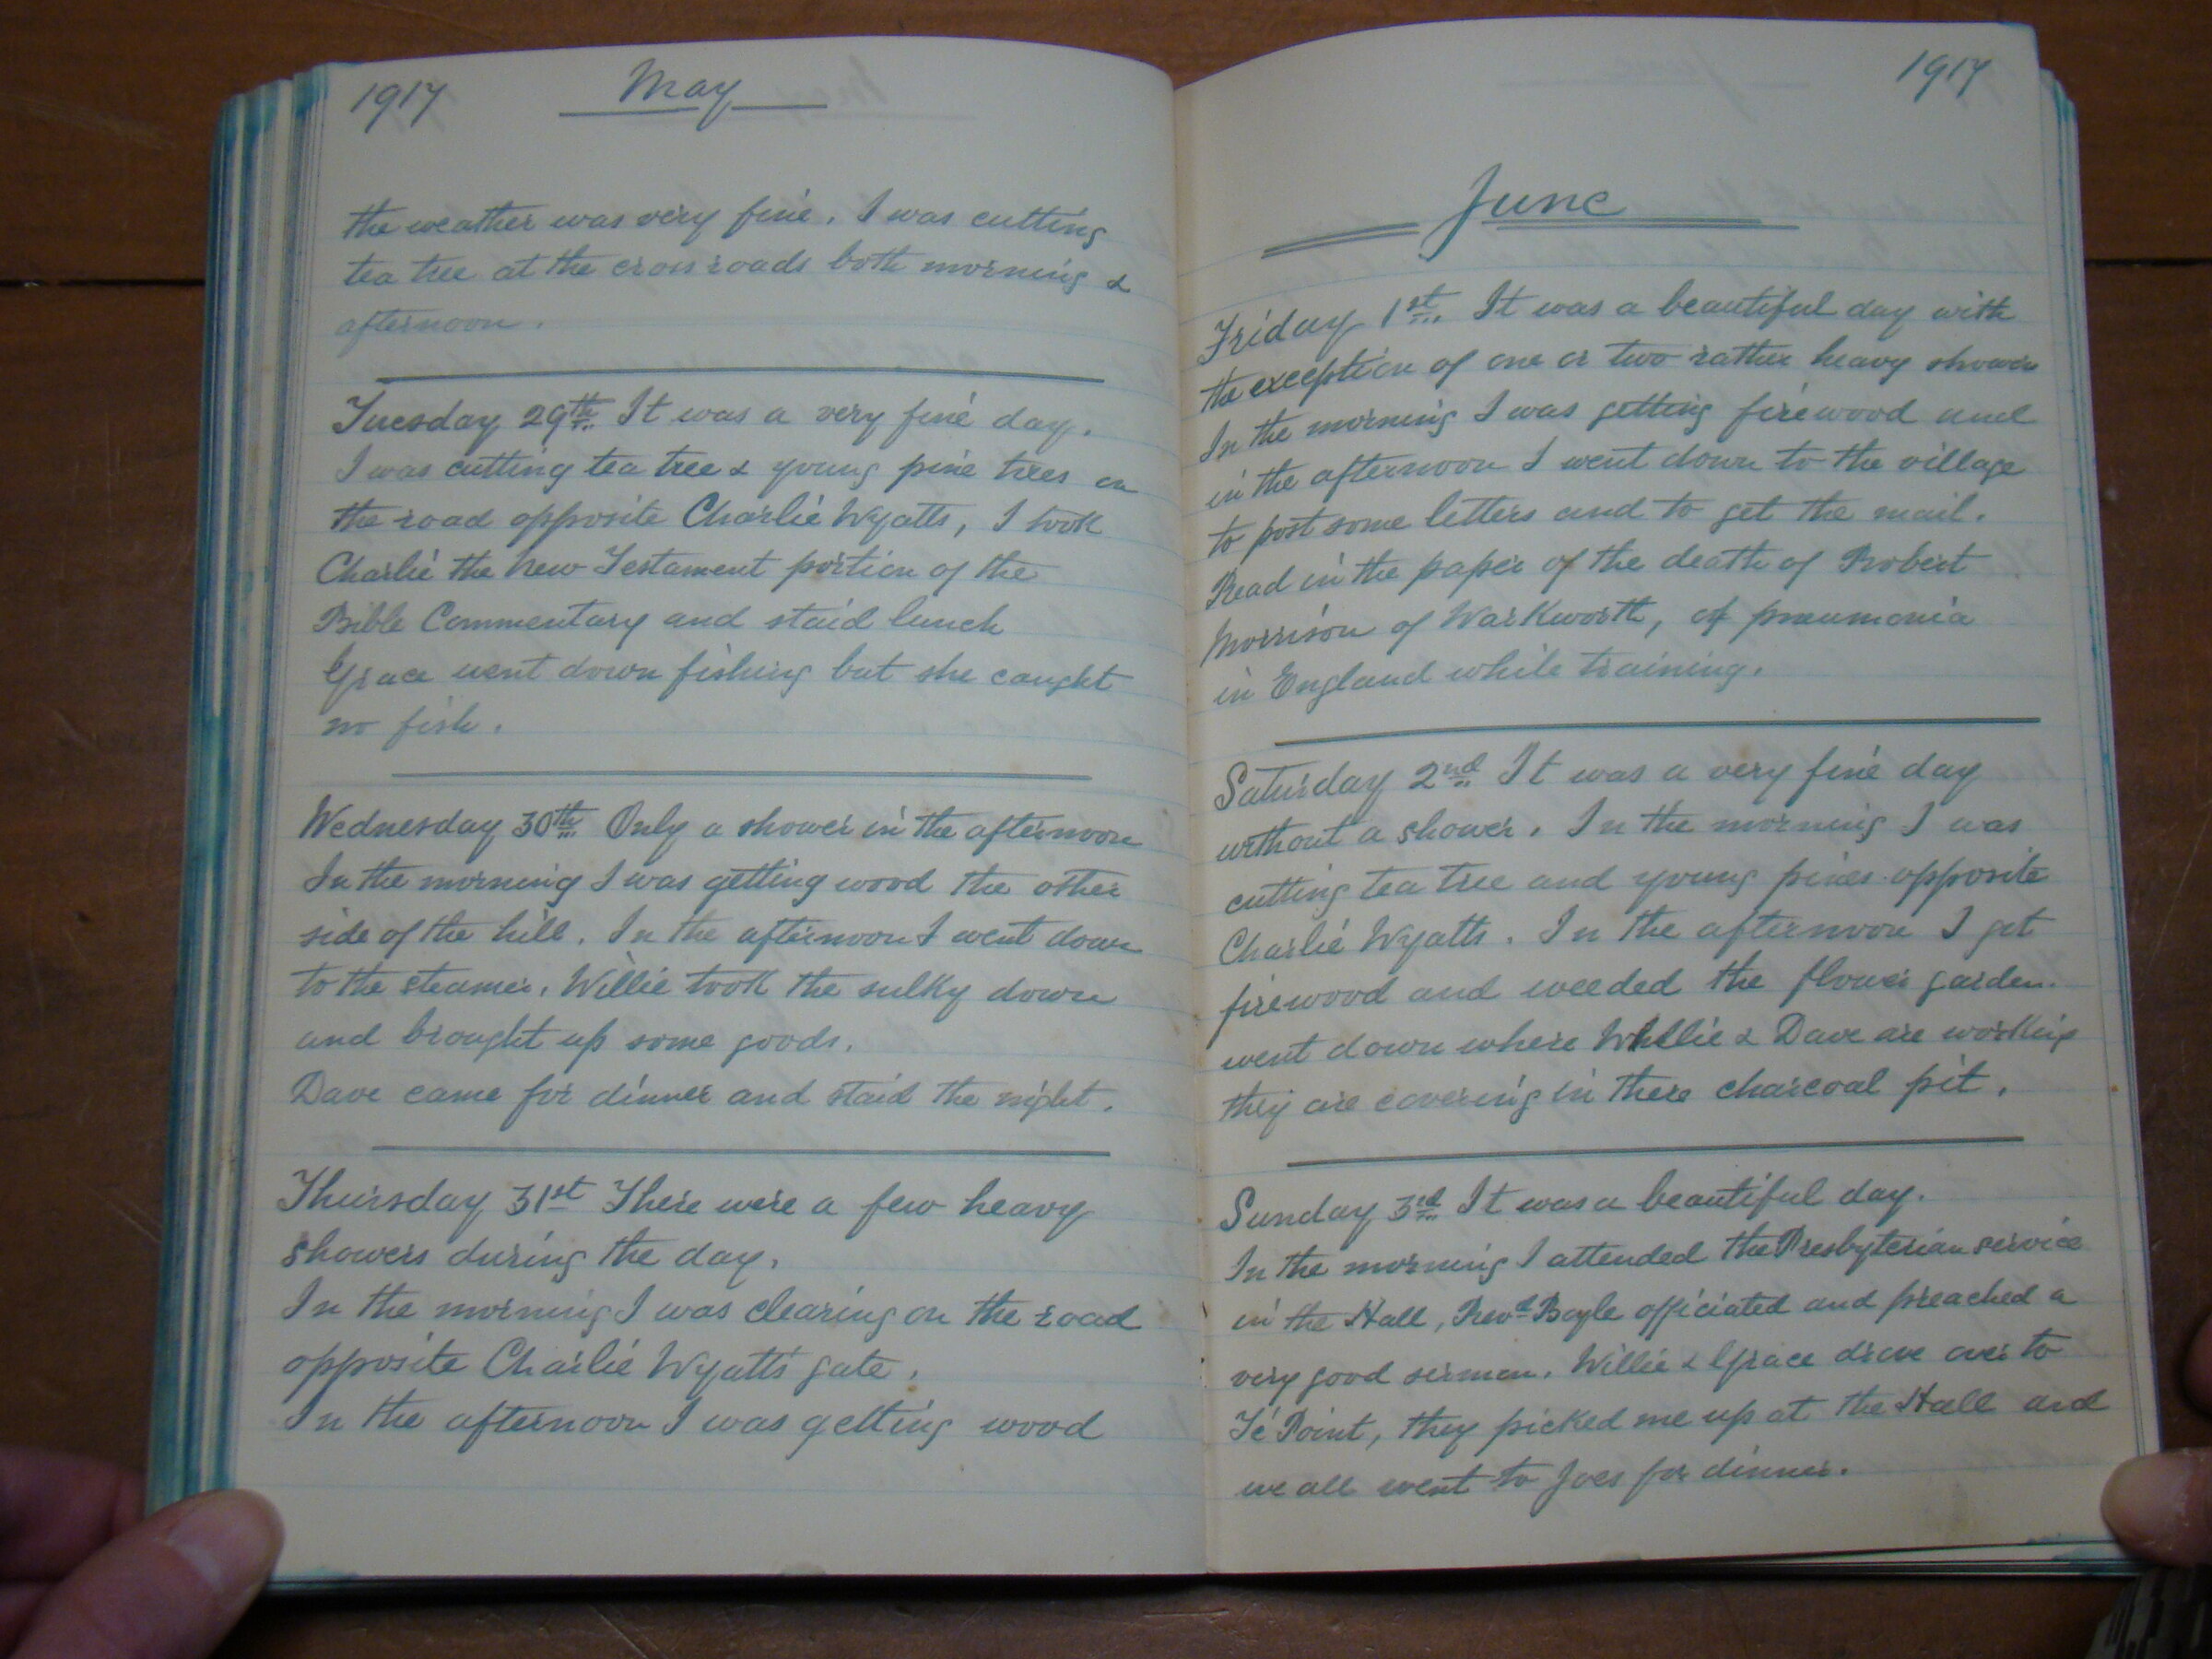 1917 May
the weather was very fine. I was cutting
tea tree at the cross roads both morning &
afternoon.
Tuesday 29th It was a very fine day.
I was cutting tea tree & young pine trees on
the road opposite Charlie Wyatts, I took
Charlie the New Testament portion of the
Bible Commentary and staid lunch
Grace went down fishing but she caught
no fish.
Wednesday 30th Only a shower in the afternoon
In the morning I was getting wood the other
side of the hill. In the afternoon I went down
to the steamer. Willie took the sulky down
and brought up some goods.
Dave came for dinner and staid the night.
Thursday 31st There were a few heavy
showers during the day.
In the morning I was clearing on the road
opposite Charlie Wyatt's gate.
In the afternoon I was getting wood
1917
June
Friday 1st It was a beautiful day with
the exception of one or two rather heavy showers
In the morning I was getting firewood and
in the afternoon I went down to the village
to post some letters and to get the mail.
Read in the paper of the death of Robert
Morrison of Warkworth, of pneumonia
in England while training.
Saturday 2nd It was a very fine day
without a shower. In the morning I was
cutting tea tree and young pines opposite
Charlie Wyatts. In the afternoon I got
firewood and weeded the flower garden.
went down where Willie & Dave are working
they are covering in there charcoal pit.
Sunday 3rd It was a beautiful day.
In the morning I attended the Presbyterian service
in the Hall, Revd Boyle officiated and preached a
very good sermon. Willie & Grace drove over to
Te Point, they picked me up at the Hall and
we all went to Joes for dinner.